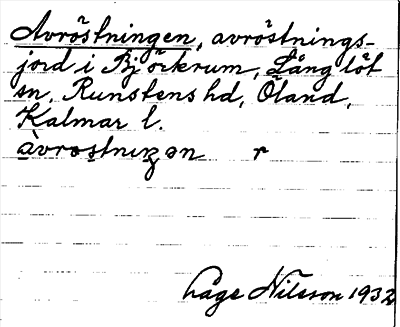 Avröstningen, avröstnings-
jord i Björkrum, Lång löt
sn, Runstens hd, Öland,
Kalmar l.
àvrostniŋen r
Låge Nilsson 1932